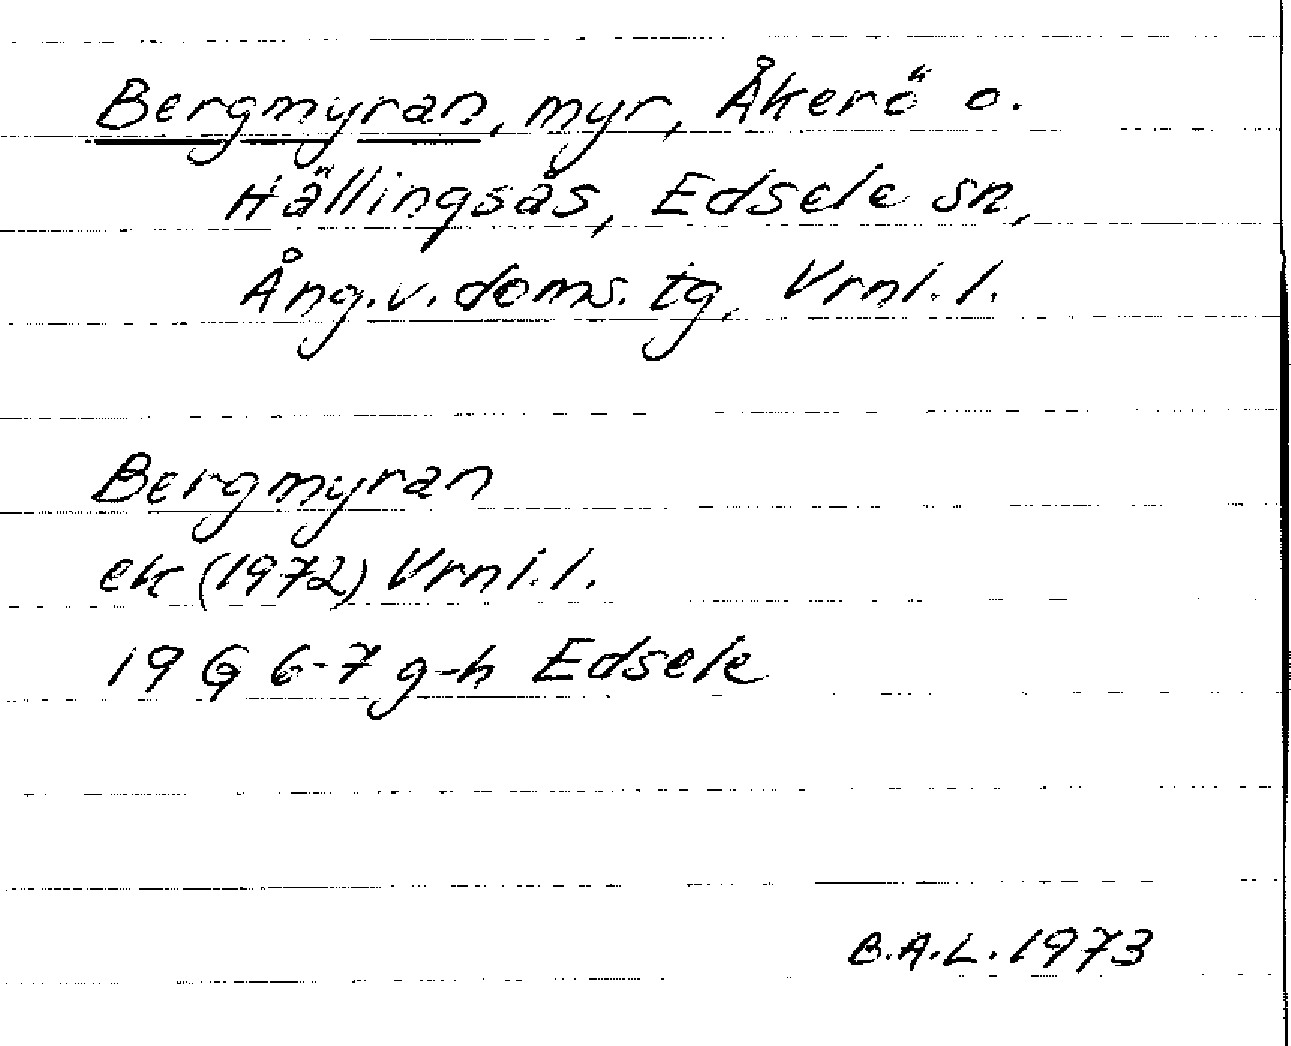 Bergmyran, myr, Åkerö o.
Hällingsås, Edsele sn,
Ång.v.doms.tg, Vrnl.l.
Bergmyran
ek (1972) Vrnl.l.
19 G 6-7 g-h Edsele
B.A.L. 1973